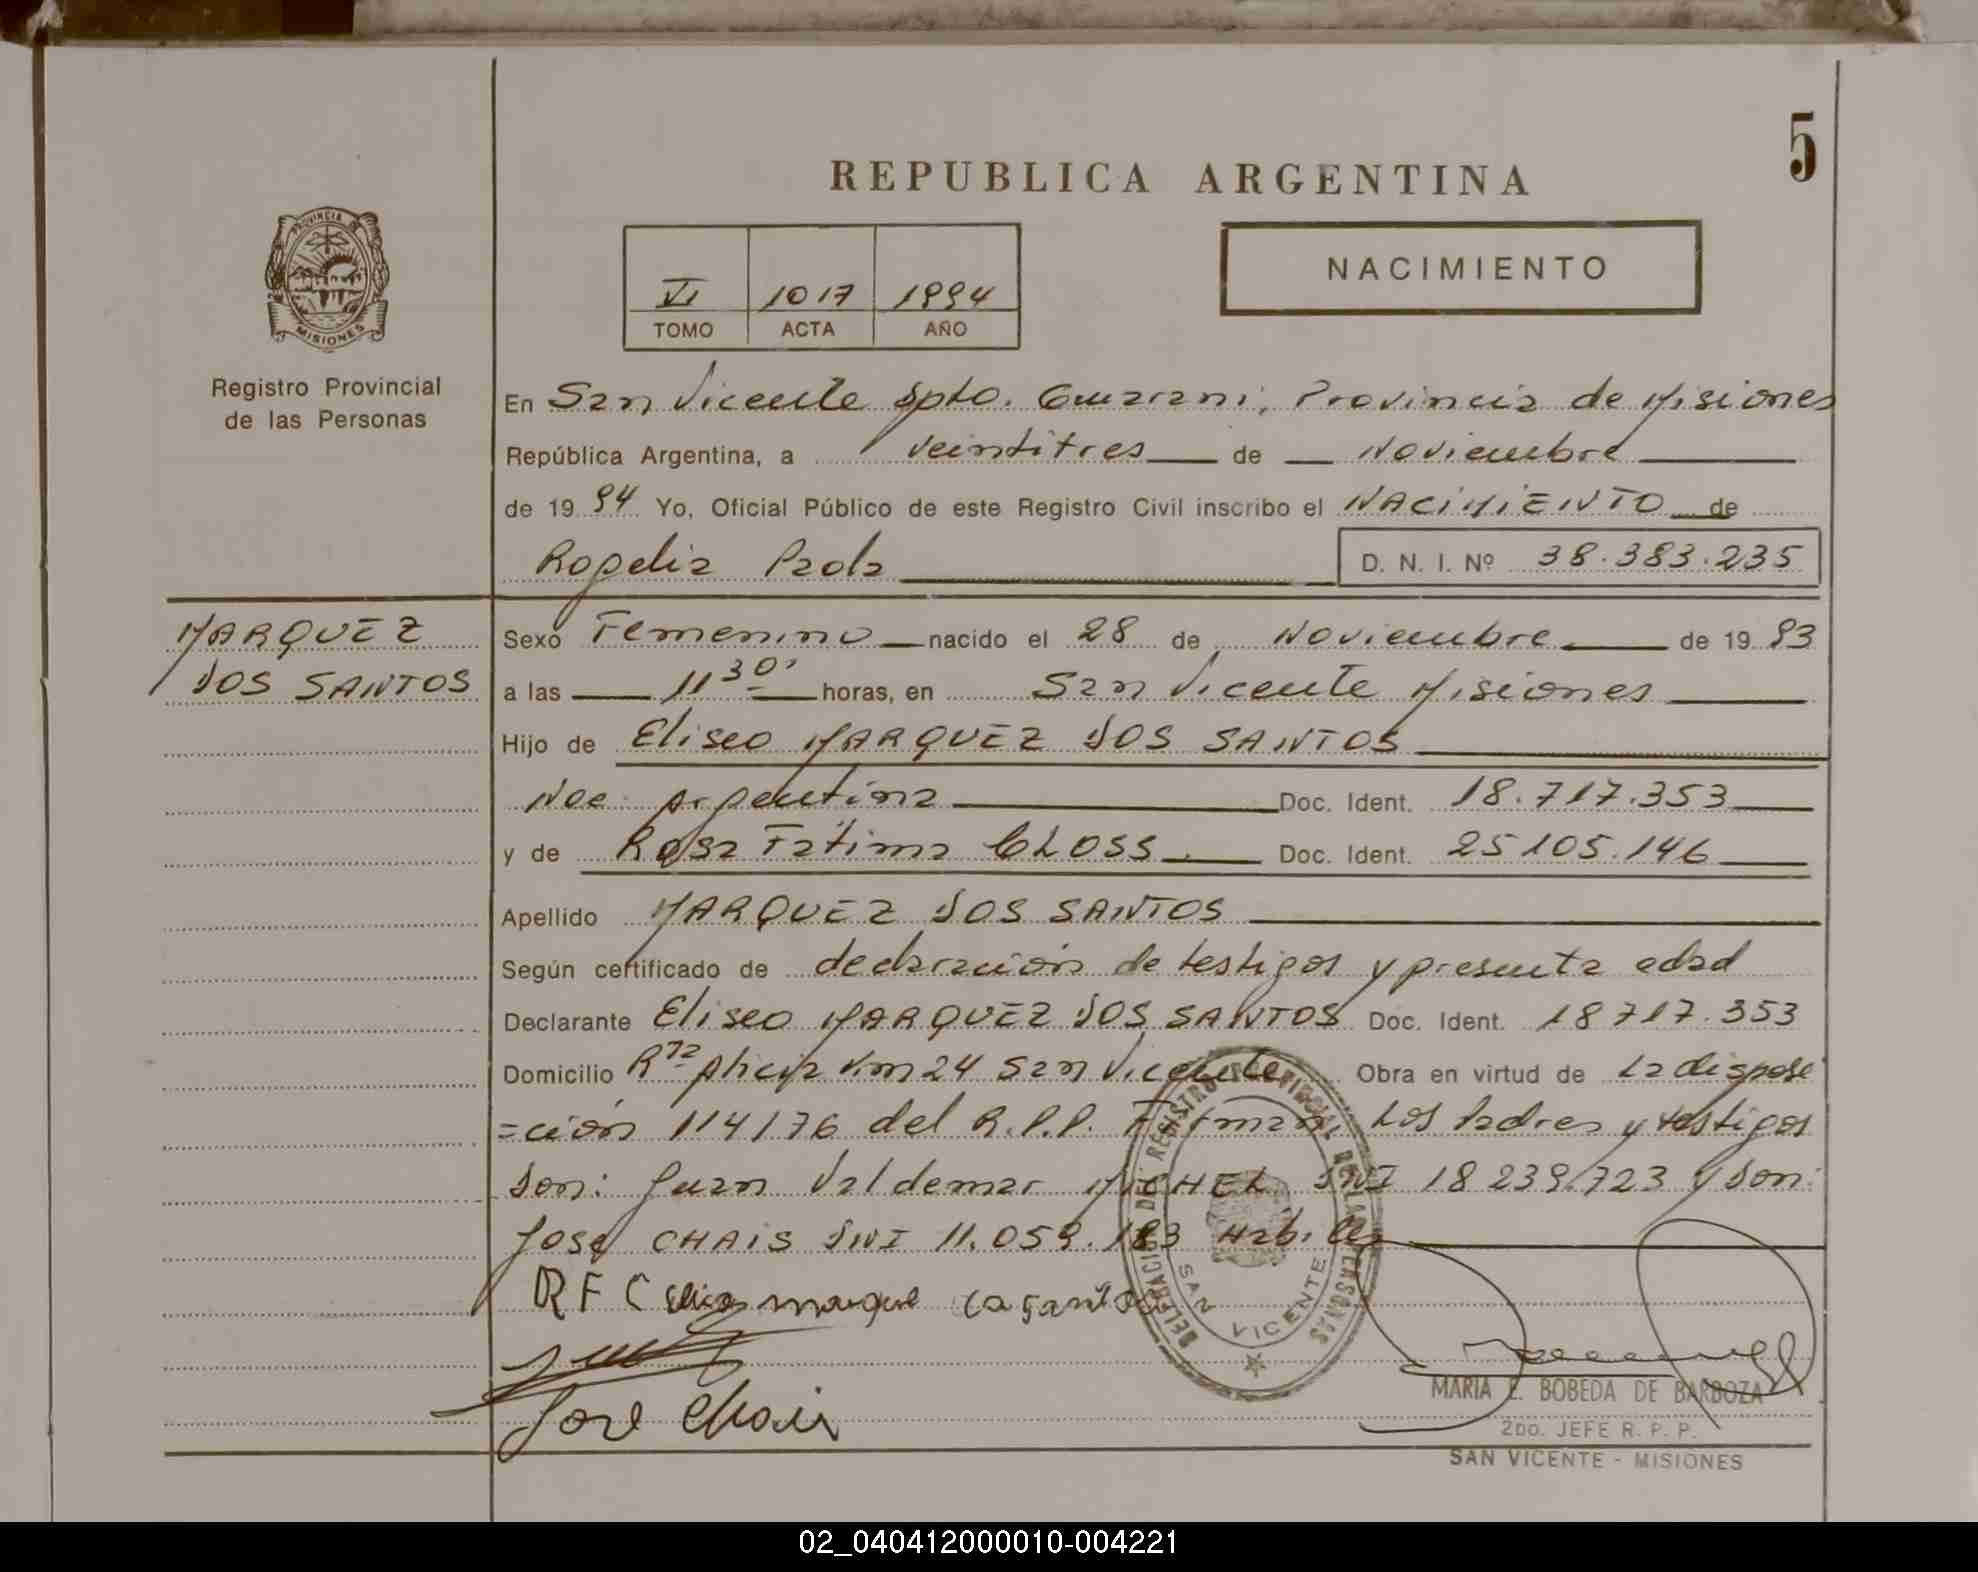 5
REPUBLICA ARGENTINA
NACIMIENTO
VI 1017 1994
TOMO ACTA AÑO
PROVINCIA DE MISIONES
Registro Provincial
de las Personas
En San Vicente Dpto. Guarani, Provincia de Misiones
República Argentina, a veintitres de Noviembre
de 1994 Yo, Oficial Público de este Registro Civil inscribo el NACIMIENTO de
Rogelia Paola D. N. I. Nº 38.383.235
MARQUEZ
DOS SANTOS
Sexo Femenino nacido el 28 de Noviembre de 1993
a las 11 30' horas, en San Vicente Misiones
Hijo de Eliseo MARQUEZ DOS SANTOS
Nac. Argentina Doc. Ident. 18.717.353
y de Rosa Fatima CLOSS. Doc. Ident. 25105.146
Apellido MARQUEZ DOS SANTOS
Según certificado de declaración de testigos y presunta edad
Declarante Eliseo MARQUEZ DOS SANTOS Doc. Ident. 18717.353
Domicilio Rta Alicia Km 24 San Vicente Obra en virtud de La disposi
=ción 114/76 del R.P.P. Firman: Los Padres y testigos
Don: Juan Valdemar MICHEL DNI 18239.723 y Don:
Jose CHAIS DNI 11.059.183 Habiles
R F C
Jose Chais
DELEGACION DEL REGISTRO PROVINCIAL DE LAS PERSONAS
SAN VICENTE
MARIA E. BOBEDA DE BARBOZA
2DO. JEFE R. P. P.
SAN VICENTE - MISIONES
02_040412000010-004221